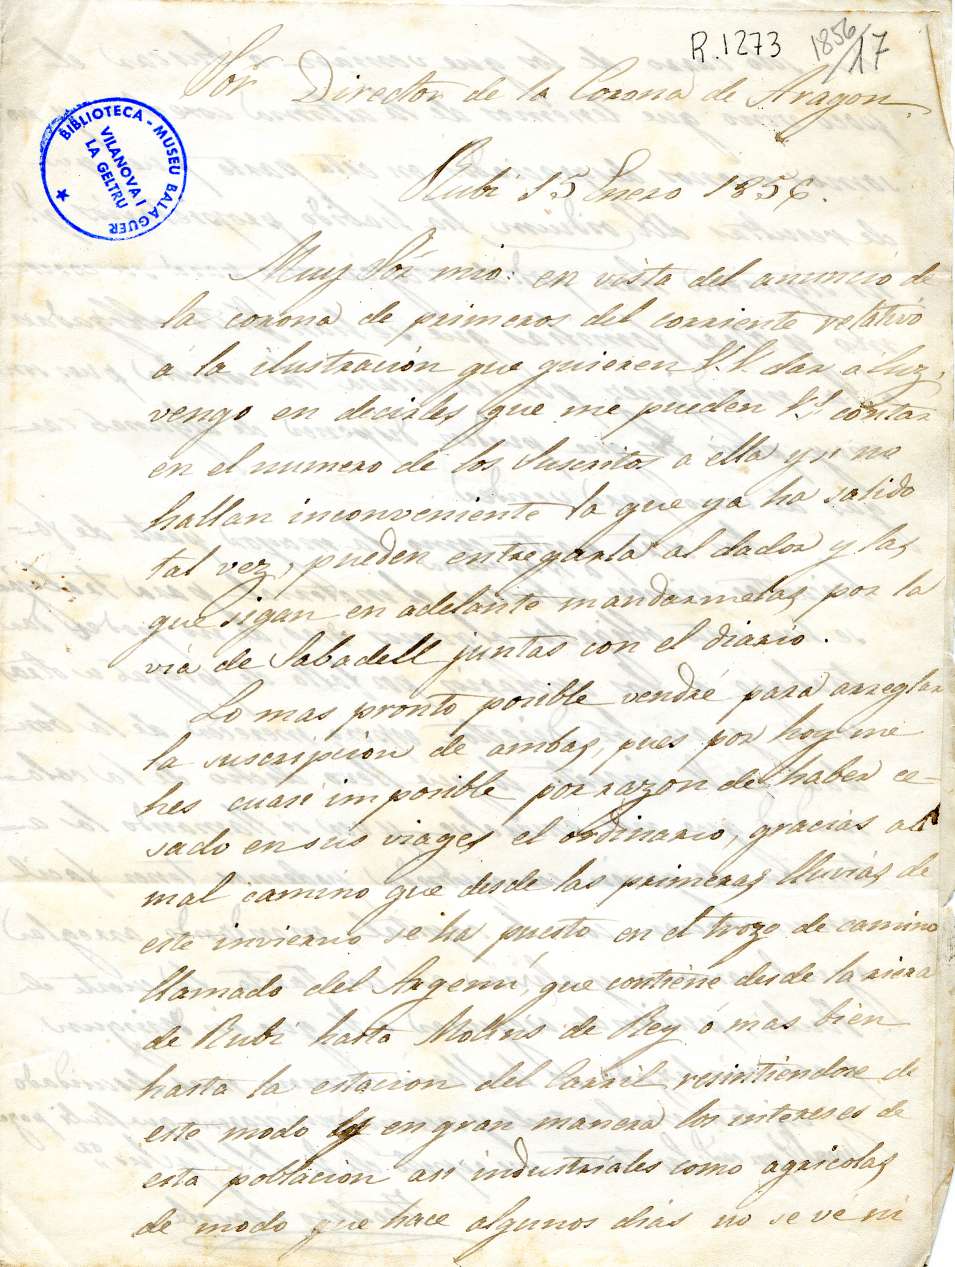 R.1273 1856/17
Sór Director de la Corona de Aragon.
BIBLIOTECA - MUSEU BALAGUER
VILANOVA I
LA GELTRU
Rubi 15 Enero 1856.
Muy Sór mio: en vista del anuncio de
la corona de primeros del corriente relativo
á la ilustración que quieren V.V. dar á luz,
vengo en decirles, que me pueden V.V. contar
en el numero de los Suscritos á ella y si no
hallan inconveniente la que ya ha salido
tal vez, pueden entregarla al dador y las
que sigan en adelante mandarmelas por la
via de Sabadell juntas con el diario.
Lo mas pronto posible vendré para arreglar
la suscripcion de ambas, pues por hoy me
hes cuasi imposible por razon de haber ce-
sado en sus viages el ordinario, gracias al
mal camino que desde las primeras lluvias de
este invierno se ha puesto en el trozo de camino
llamado del Argemí, que contiene desde la riera
de Rubí hasta Molins de Rey ó mas bien
hasta la estacion del Carril resintiendose de
este modo en gran manera los intereses de
esta poblacion asi industriales como agricolas,
de modo que hace algunos dias no se vé ni